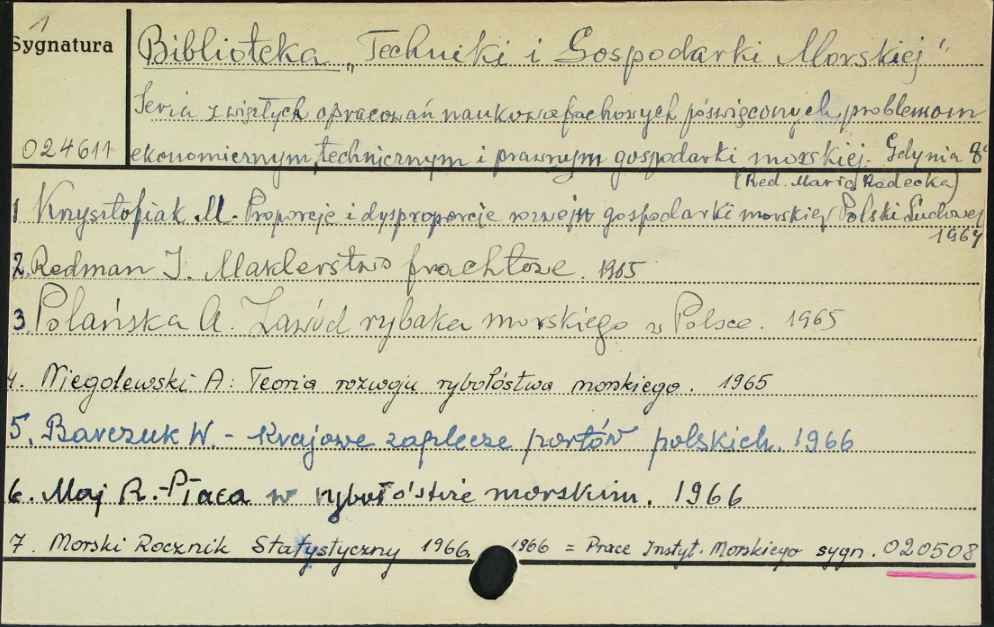 1
Sygnatura
Biblioteka „Techniki i Gospodarki Morskiej"
Seria zwięzłych opracowań naukowo fachowych poświęconych problemom
024611
ekonomicznym, technicznym i prawnym gospodarki morskiej. Gdynia 8°
(Red. Maria Radecka)
1 Krzysztofiak M. Proporcje i dysproporcje rozwoju gospodarki morskiej Polski Ludowej
1964
2. Redman J. Maklerstwo frachtowe. 1965
3 Polańska A. Zawód rybaka morskiego w Polsce. 1965
4. Niegolewski A: Teoria rozwoju rybołóstwa morskiego. 1965
5. Barczuk W. - Krajowe zaplecze portów polskich. 1966
6. Maj R. - Płaca w rybołó'stwie morskim. 1966
7. Morski Rocznik Statystyczny 1966. 1966 = Prace Instyt. Morskiego sygn. 020508